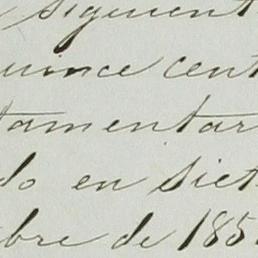 siguient
uince cent
tamentar
do en siet
bre de 185